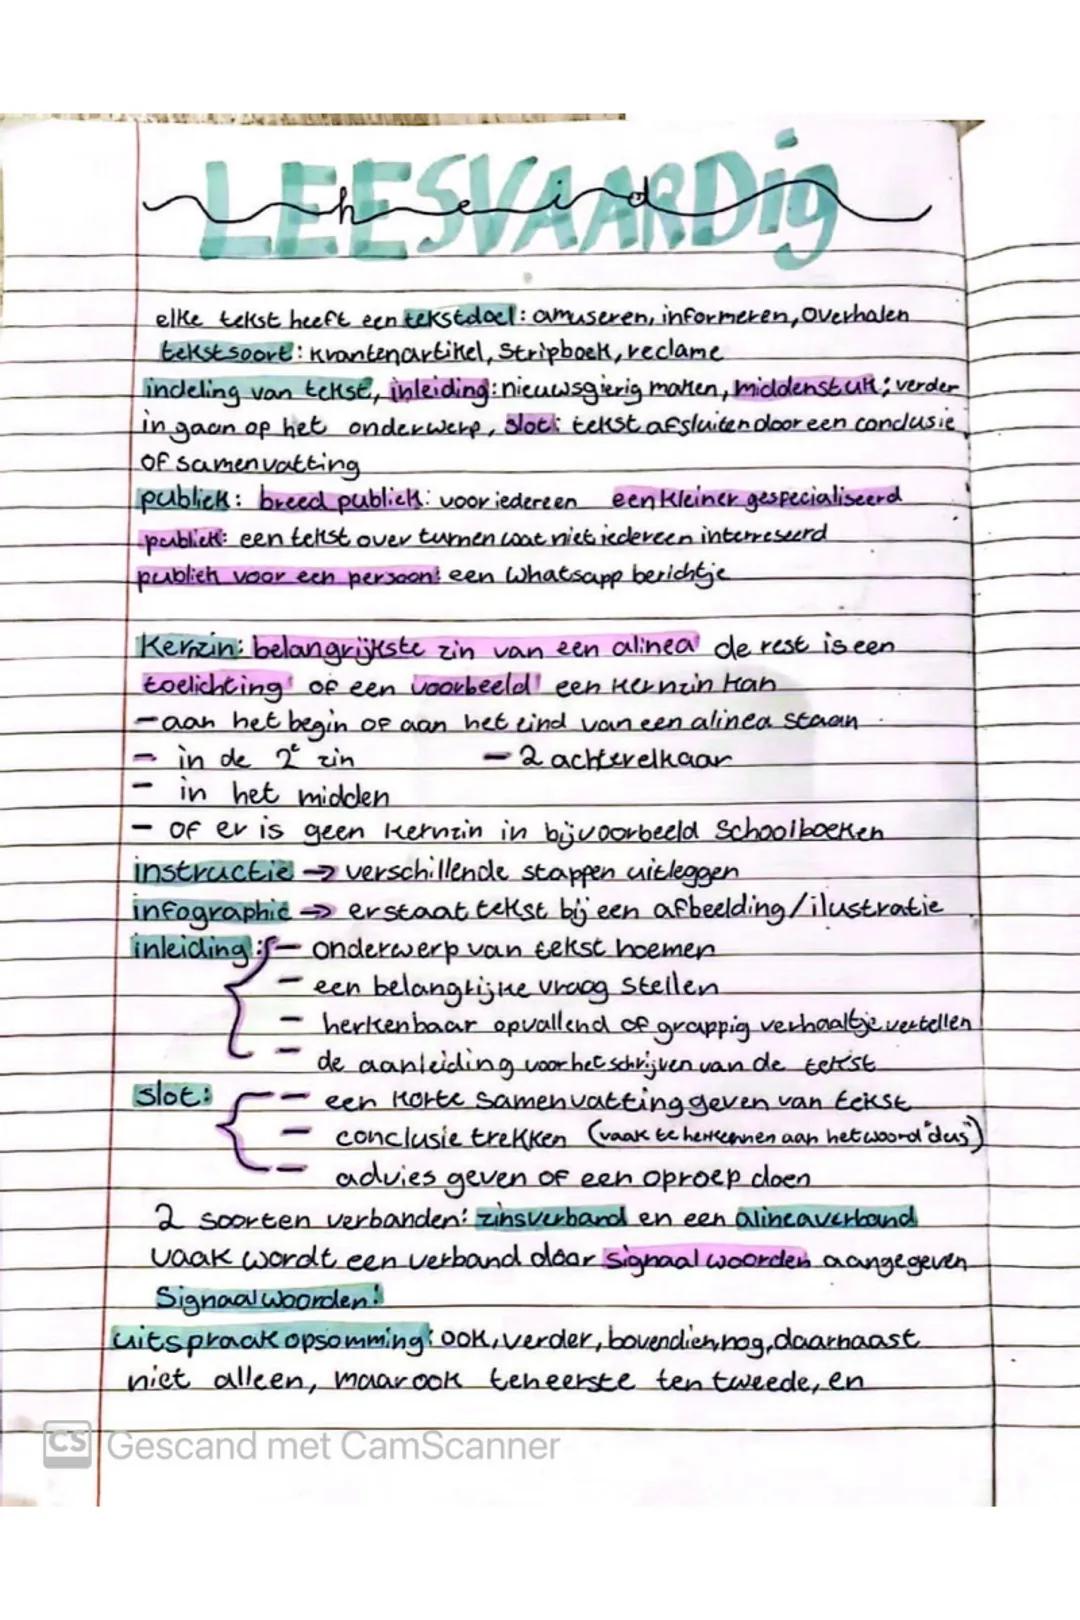 LEESVAARDig
heid
elke tekst heeft een tekstdoel: amuseren, informeren, Overhalen
tekstsoort: krantenartikel, Stripboek, reclame
indeling van tekst, inleiding: nieuwsgierig maken, middenstuk; verder
in gaan op het onderwerp, slot: tekst afsluiten door een conclusie
of samenvatting
publiek: breed publiek: voor iedereen een kleiner gespecialiseerd
publiek: een tekst over turnen wat niet iedereen interreseerd
publiek voor een persoon: een Whatsapp berichtje
Kernzin: belangrijkste zin van een alinea' de rest is een
toelichting' of een voorbeeld' een kernzin kan
- aan het begin of aan het eind van een alinea staan
- in de 2e zin - 2 achterelkaar
- in het midden
- of er is geen kernzin in bijvoorbeeld Schoolboeken
instructie → verschillende stappen uitleggen
infographic → er staat tekst bij een afbeelding/ilustratie
inleiding: - onderwerp van tekst noemen
- een belangrijke vraag stellen
- herkenbaar opvallend of grappig verhaaltje vertellen
- de aanleiding voor het schrijven van de tekst
slot: - een korte samenvatting geven van tekst
- conclusie trekken (vaak te herkennen aan het woord "dus")
- advies geven of een oproep doen
2 soorten verbanden: zinsverband en een alineaverband
vaak wordt een verband door signaal woorden aangegeven
Signaalwoorden:
uitspraak opsomming: ook, verder, bovendien, nog, daarnaast
niet alleen, maar ook ten eerste ten tweede, en
CS Gescand met CamScanner